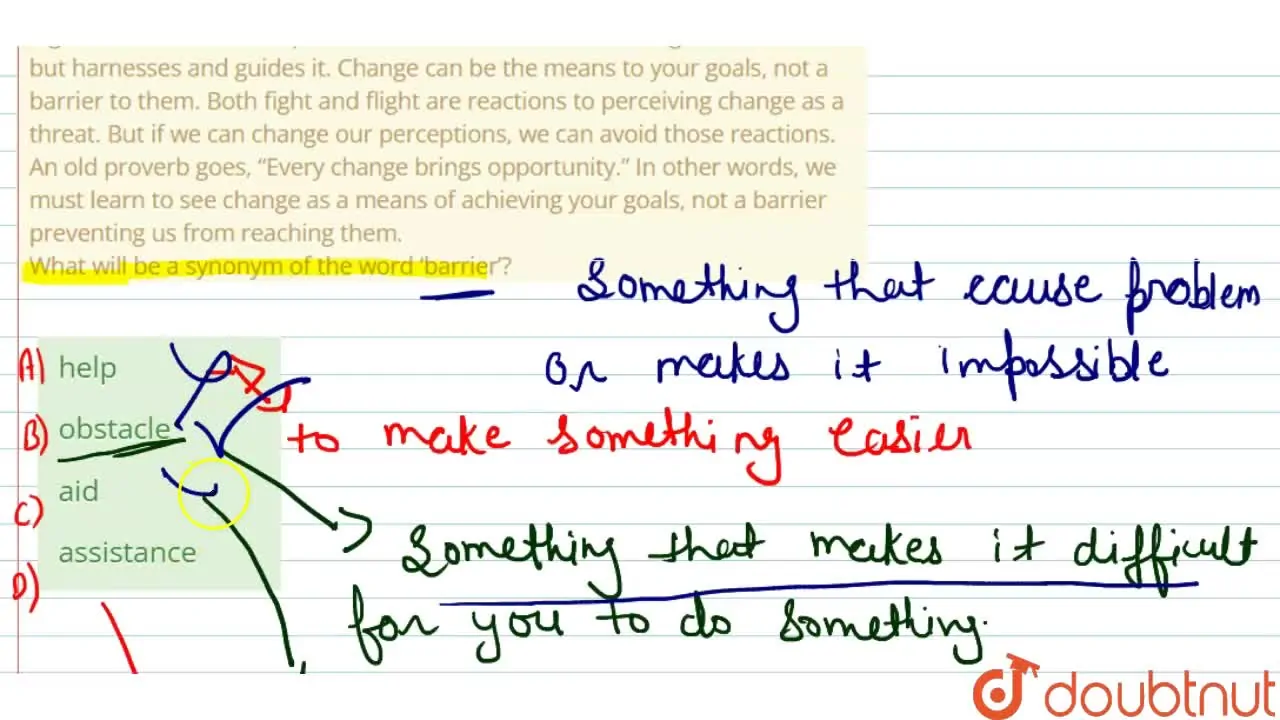 but harnesses and guides it. Change can be the means to your goals, not a
barrier to them. Both fight and flight are reactions to perceiving change as a
threat. But if we can change our perceptions, we can avoid those reactions.
An old proverb goes, “Every change brings opportunity.” In other words, we
must learn to see change as a means of achieving your goals, not a barrier
preventing us from reaching them.
What will be a synonym of the word ‘barrier’?
Something that cause problem
or makes it impossible
A) help
B) obstacle
to make something easier
C) aid
Something that makes it difficult
D) assistance
for you to do something.
doubtnut